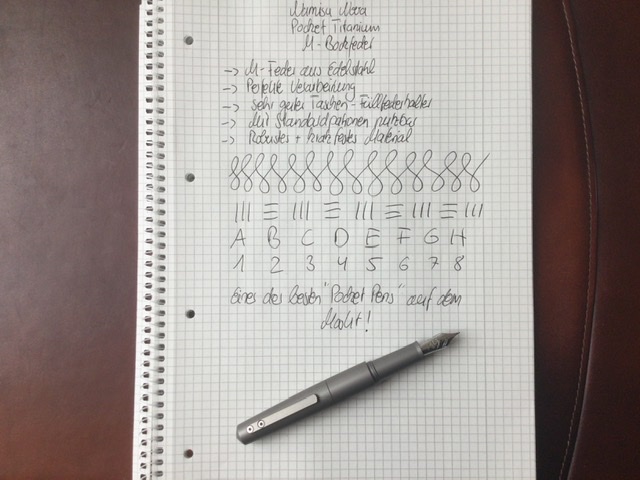 Namisu Nova
Pocket Titanium
M-Bockfeder
-> M-Feder aus Edelstahl
-> Perfekte Verarbeitung
-> Sehr guter Taschen-Füllfederhalter
-> Mit Standardpatronen nutzbar
-> Robustes + kratzfestes Material
A B C D E F G H
1 2 3 4 5 6 7 8
Eines der besten "Pocket Pens" auf dem
Markt!